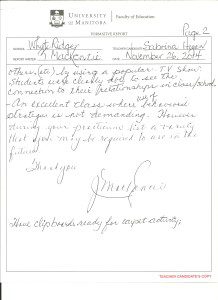 UNIVERSITY
OF MANITOBA
Faculty of Education
Page 2
FORMATIVE REPORT
Whyte Ridge
Sabrina
J MacKenzie
DATE November 26, 2014
others(etc) by using a popular TV show.
Students were clearly able to see the
connection to their relationships in class/school.
- An excellent class where behavioural
strategies is not demanding. However
during your practicum is a variety
that you may be required to use in the
future
Thank you
Have clipboards ready for carpet activity.
TEACHER CANDIDATE'S COPY